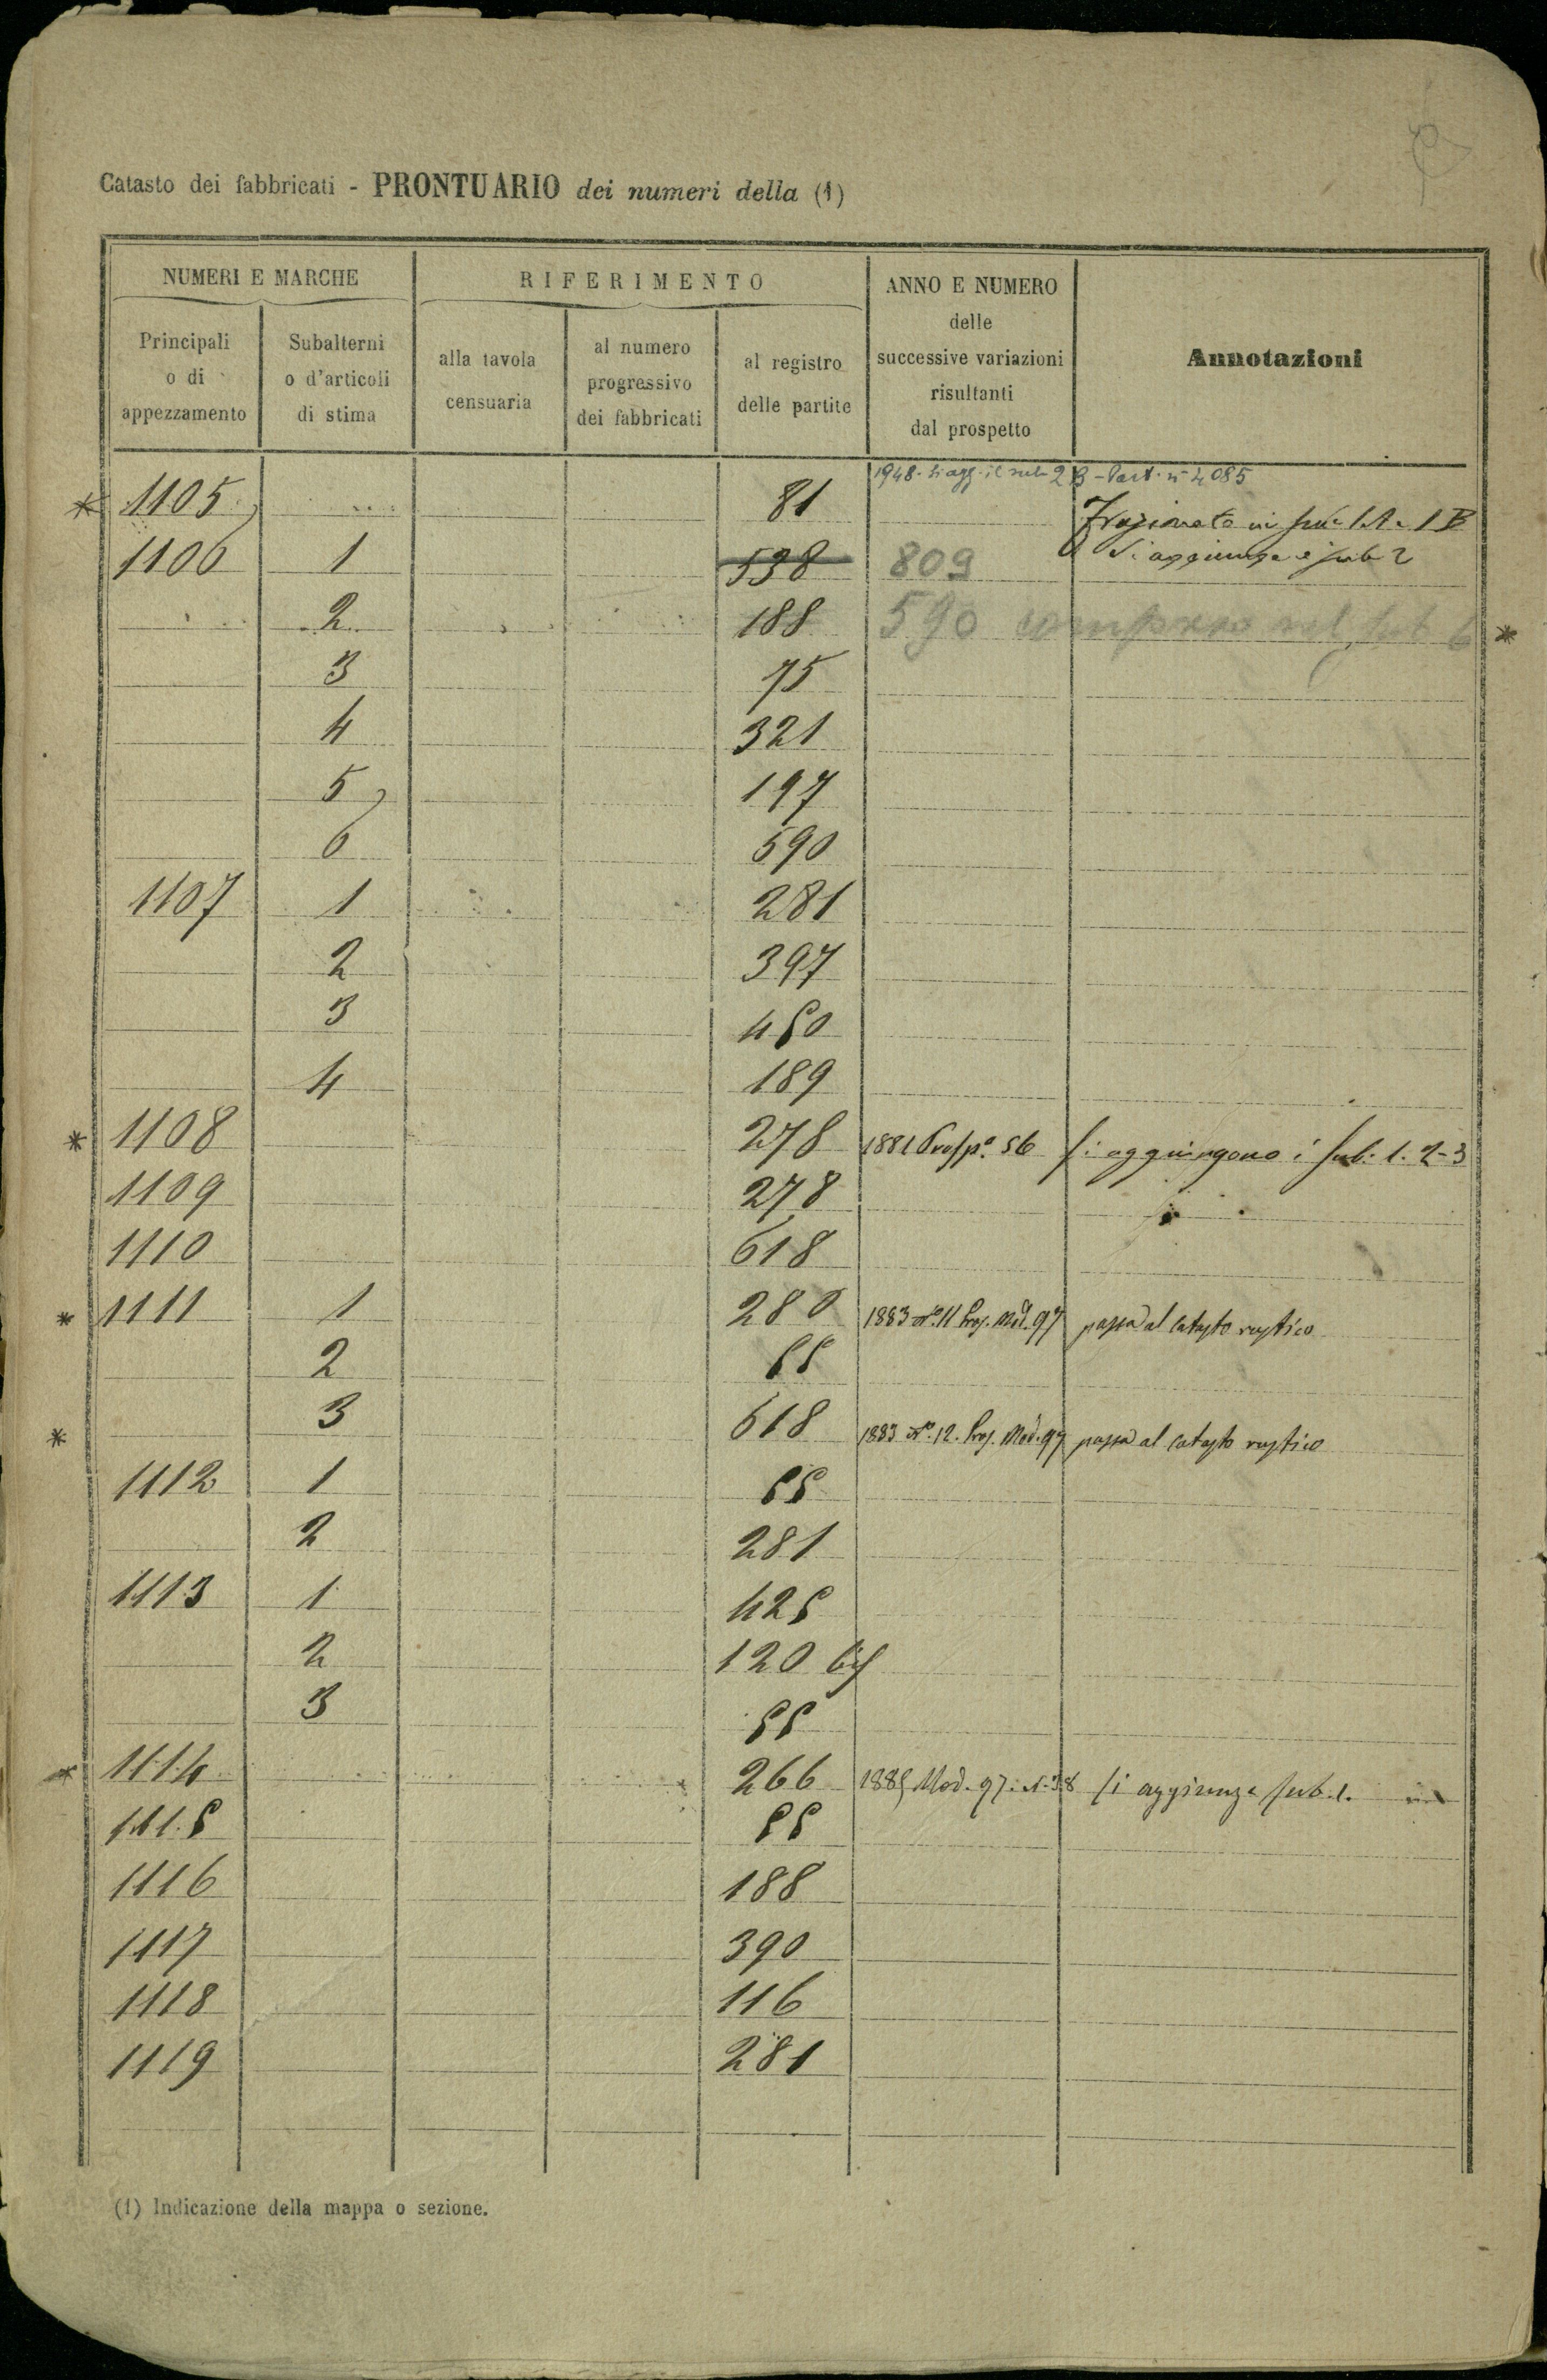 Catasto dei fabbricati - PRONTUARIO dei numeri della (1)
NUMERI E MARCHE
RIFERIMENTO
ANNO E NUMERO
delle
successive variazioni
risultanti
dal prospetto
Annotazioni
Principali
o di
appezzamento
Subalterni
o d'articoli
di stima
alla tavola
censuaria
al numero
progressivo
dei fabbricati
al registro
delle partite
1948. Si agg. il sub 2 B - Part. n° 4085
* 1105 81 Frazionato in sub 1A - 1B
Si aggiunge il sub 2
1106 1 538 809
2 188 590 compreso nel sub 6 *
3 75
4 321
5 197
6 590
1107 1 281
2 397
3 450
4 189
* 1108 278 1881 Prosp.° 56 Si aggiungono i sub: 1. 2-3
1109 278
1110 618
* 1111 1 280 1883 N°. 11 Pros. Mod. 97 passa al catasto rustico
2 55
* 3 618 1883 N°. 12. Pros. Mod. 97 passa al catasto rustico
1112 1 55
2 281
1113 1 425
2 120 bis
3 55
* 1114 266 1885 Mod. 97. N. 38 Si aggiunge sub. 1.
1115 55
1116 188
1117 390
1118 116
1119 281
(1) Indicazione della mappa o sezione.